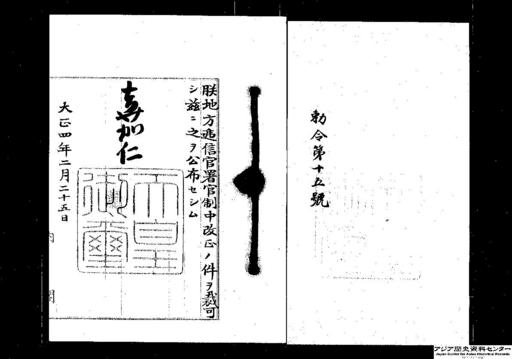 勅令第十五號
朕地方逓信官署官制中改正ノ件ヲ裁可
シ茲ニ之ヲ公布セシム
嘉仁
天皇御璽
大正四年二月二十五日
内閣
アジア歴史資料センター
Japan Center for Asian Historical Records